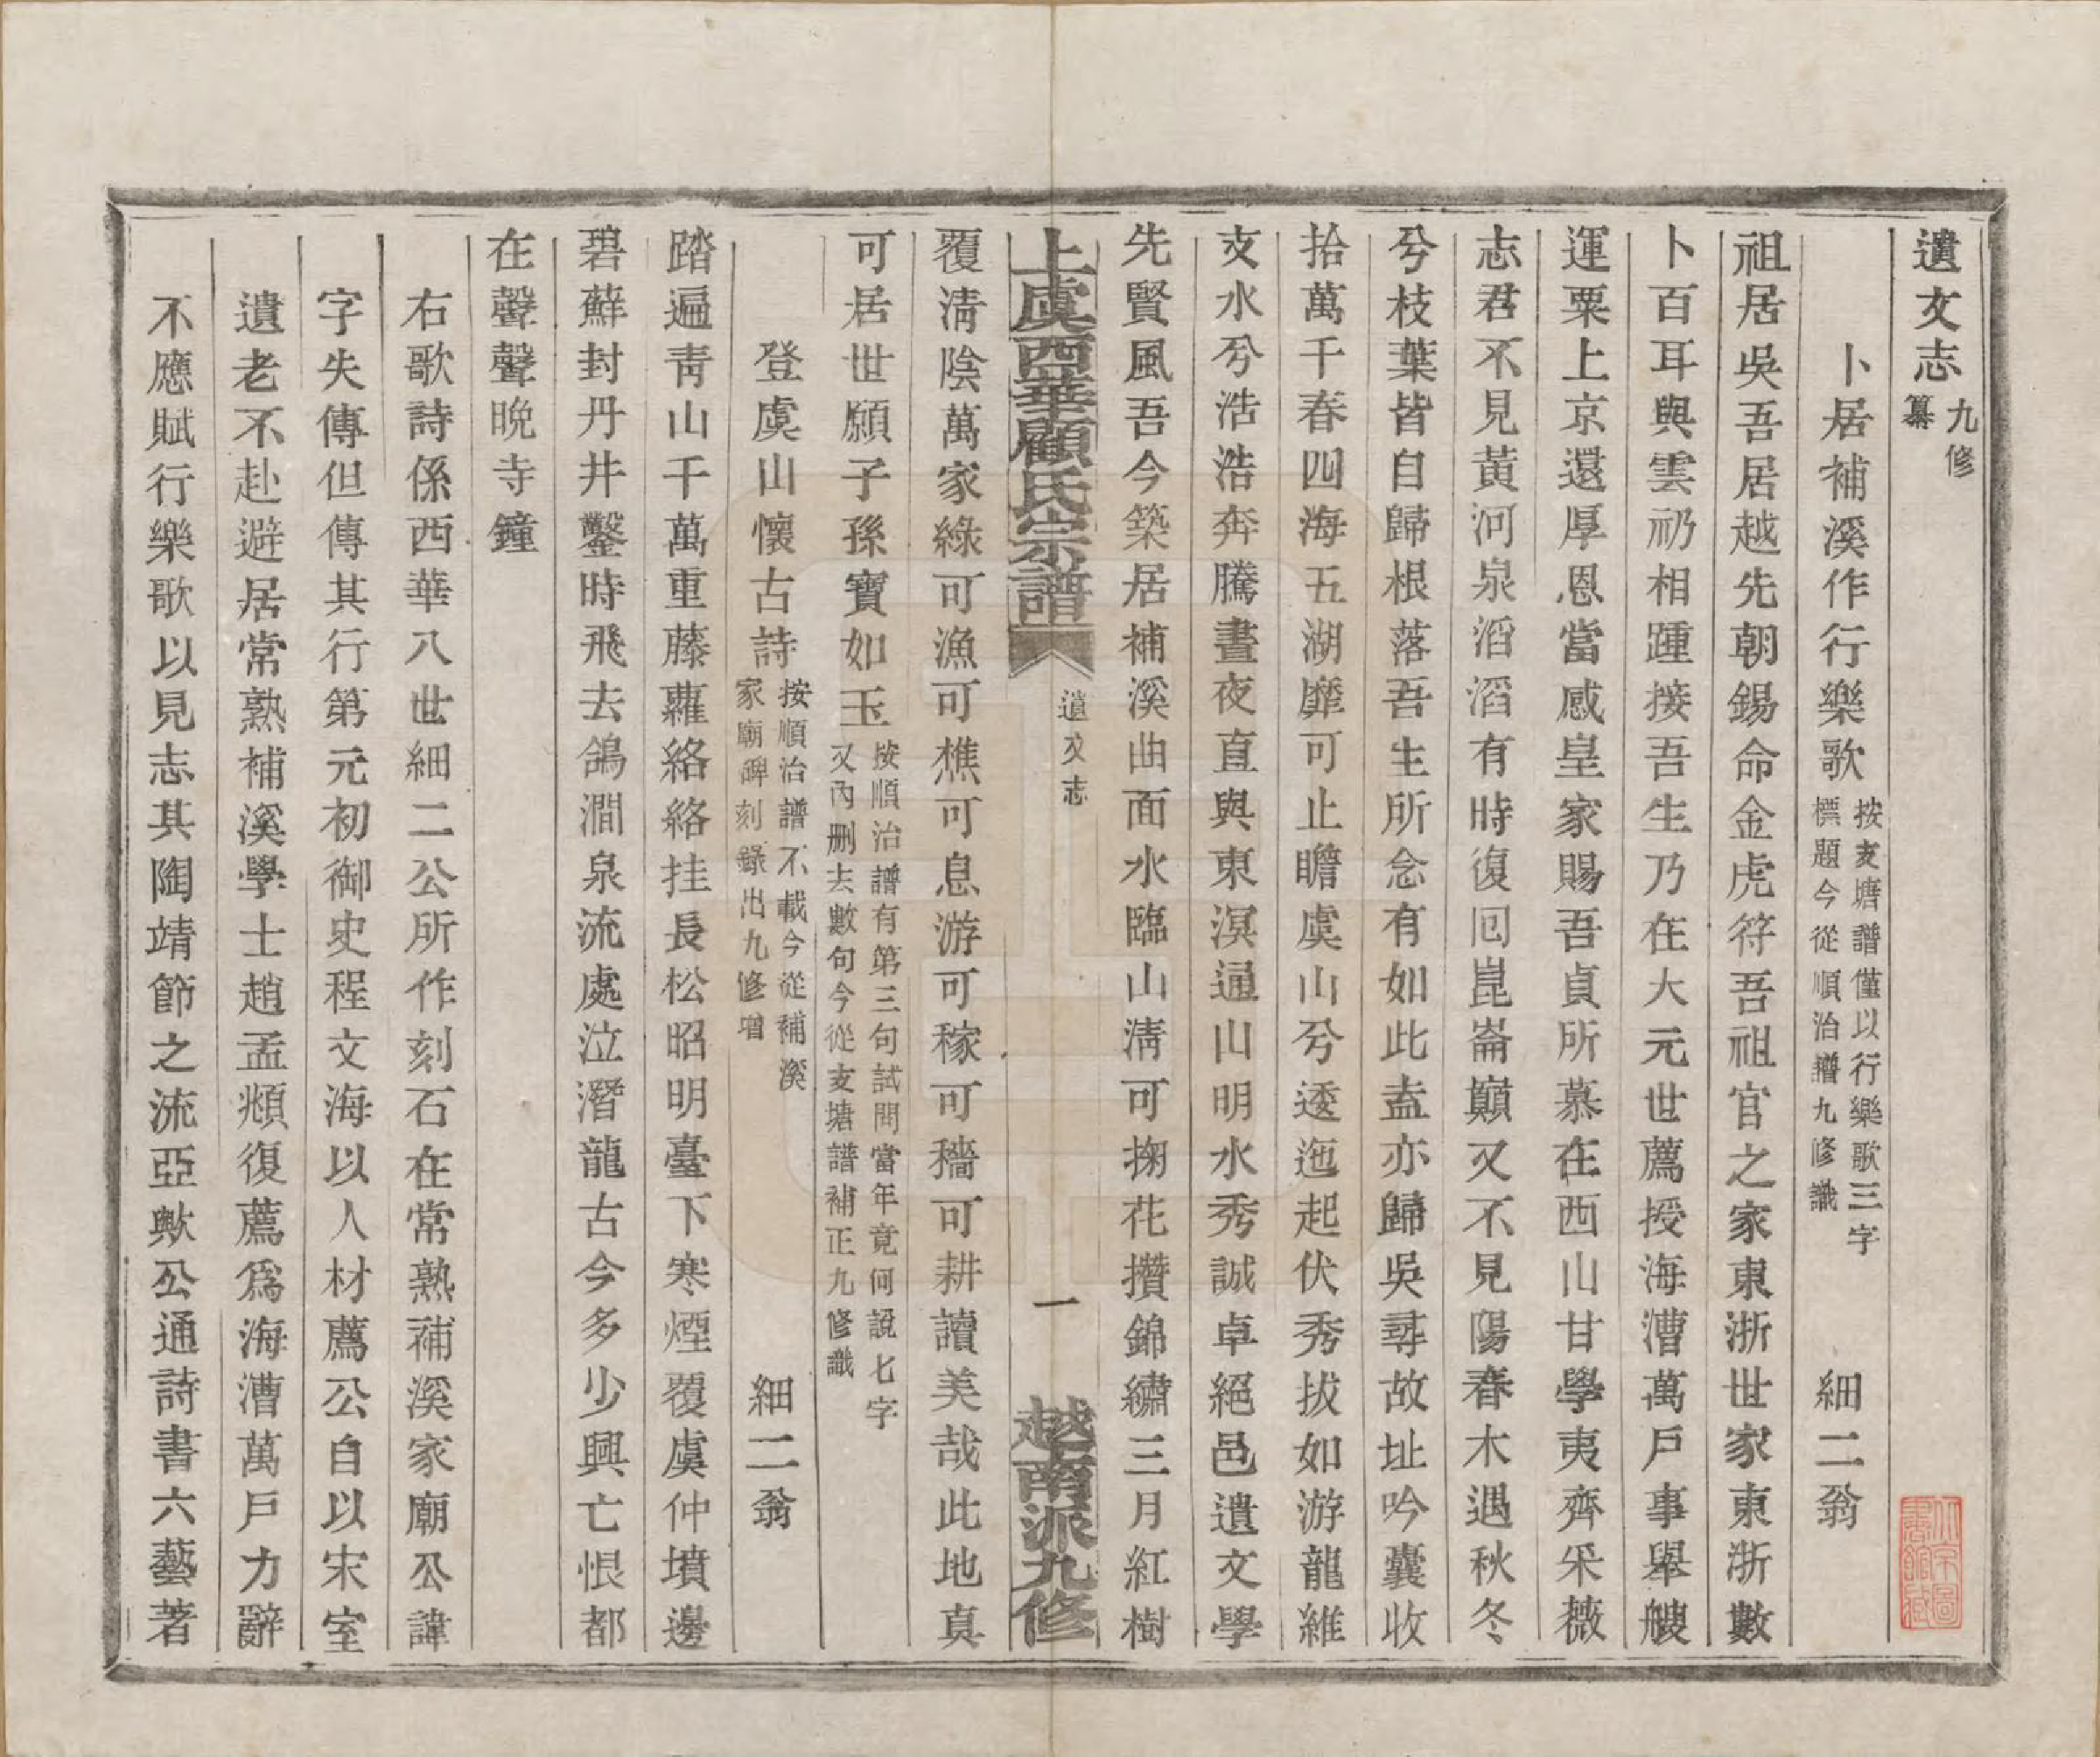 遺文志九修纂
卜居補溪作行樂歌按支塘譜僅以行樂歌三字標題今從順治譜九修識　細二翁
祖居吳吾居越先朝錫命金虎符吾祖官之家東浙世家東浙數
卜百耳與雲礽相踵接吾生乃在大元世薦授海漕萬戶事舉艘
運粟上京還厚恩當感皇家賜吾貞所慕在西山甘學夷齊采薇
志君不見黃河泉滔滔有時復回崑崙巔又不見陽春木遇秋冬
兮枝葉皆自歸根落吾生所念有如此盍亦歸吳尋故址吟囊收
拾萬千春四海五湖靡可止瞻虞山兮逶迤起伏秀拔如游龍維
支水兮浩浩奔騰晝夜直與東溟通山明水秀誠卓絕邑遺文學
先賢風吾今築居補溪曲面水臨山淸可掬花攢錦繡三月紅樹
上虞西華顧氏宗譜　遺文志　一　越南派九修
覆淸陰萬家綠可漁可樵可息游可稼可穡可耕讀美哉此地真
可居世願子孫寶如玉按順治譜有第三句試問當年竟何說七字又內刪去數句今從支塘譜補正九修識
登虞山懷古詩按順治譜不載今從補溪家廟碑刻錄出九修增　細二翁
踏遍靑山千萬重藤蘿絡絡挂長松昭明臺下寒煙覆虞仲墳邊
碧蘚封丹井鑿時飛去鴿澗泉流處泣潛龍古今多少興亡恨都
在聲聲晚寺鐘
右歌詩係西華八世細二公所作刻石在常熟補溪家廟公諱
字失傳但傳其行第元初御史程文海以人材薦公自以宋室
遺老不赴避居常熟補溪學士趙孟頫復薦爲海漕萬戶力辭
不應賦行樂歌以見志其陶靖節之流亞歟公通詩書六藝著